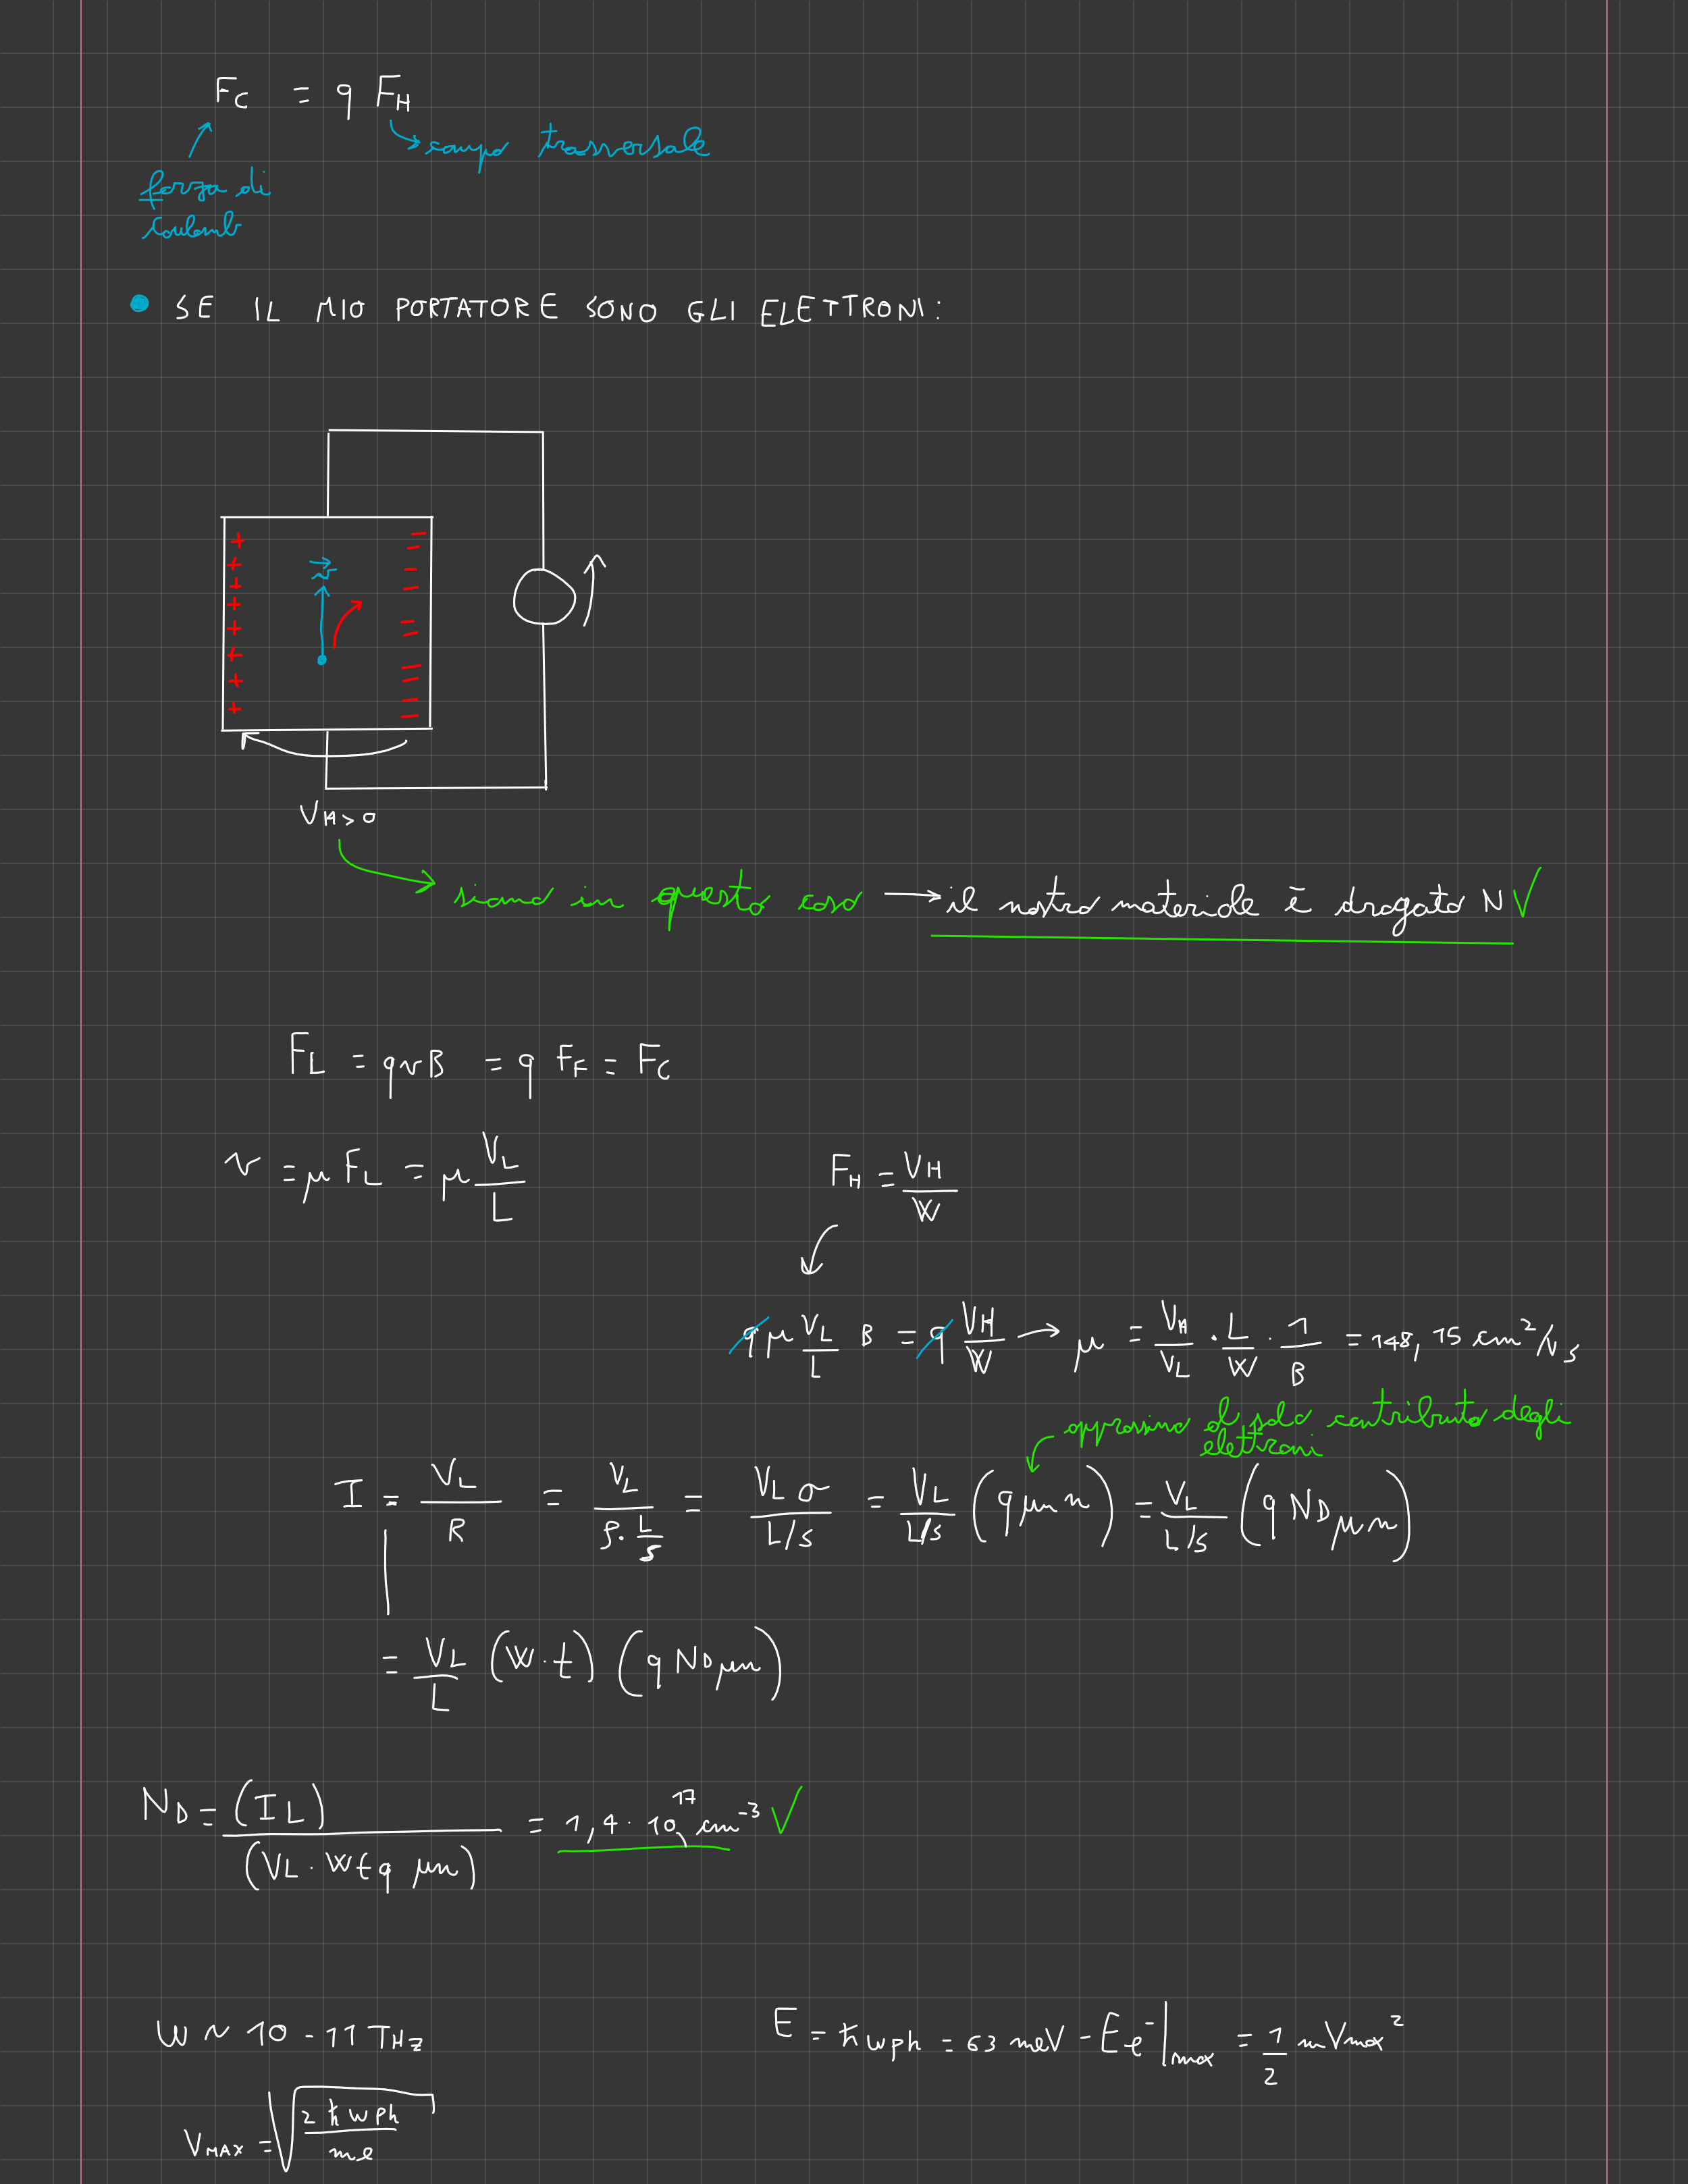 Fc = q FH
campo trasversale
forza di
Coulomb
SE IL MIO PORTATORE SONO GLI ELETTRONI:
+ + + + + + + +
- - - - - - - - - -
v
VH>0
siamo in questo caso → il nostro materiale è drogato N ✓
FL = qvB = q FF = Fc
v = μ FL = μ VL/L
FH = VH/W
qμ VL/L B = q VH/W → μ = VH/VL · L/W · 1/B = 148,15 cm²/Vs
approssimo al solo contributo degli
elettroni
I = VL/R = VL/(ρ·L/S) = VL σ/(L/S) = VL/(L/S) (qμn n) = VL/(L/S) (q ND μn)
= VL/L (W·t) (q ND μn)
ND = (IL)/(VL·Wtq μn) = 1,4·10¹⁷ cm⁻³ ✓
W ~ 10-11 THz
E = ħwph = 63 meV - Ee⁻|max = 1/2 mVmax²
VMAX = √(2ħwph/me)